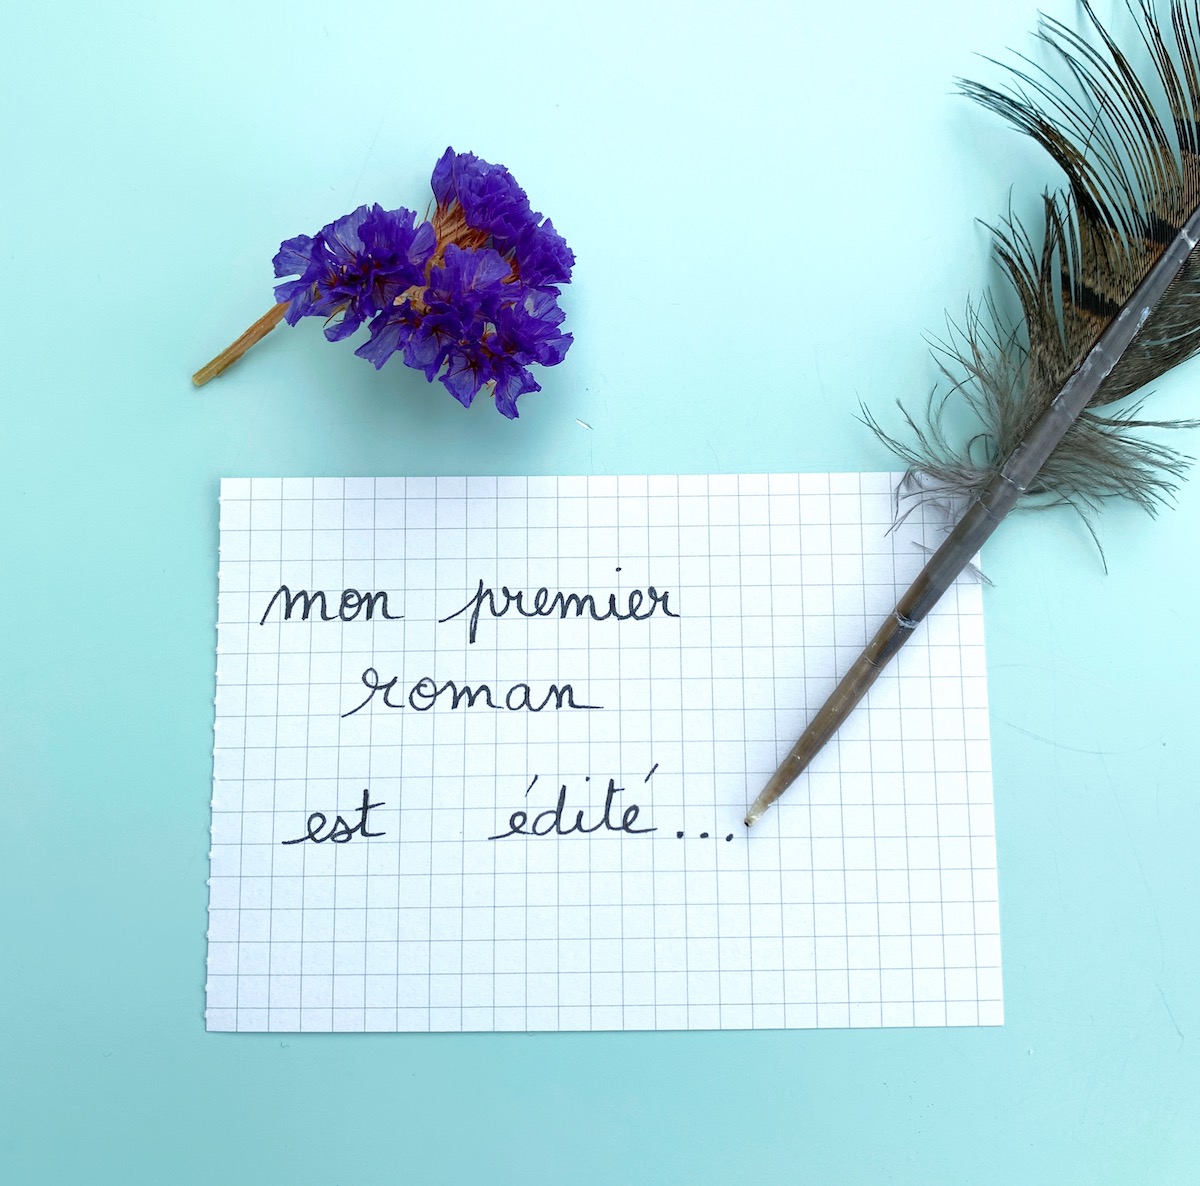 mon premier
roman
est édité...